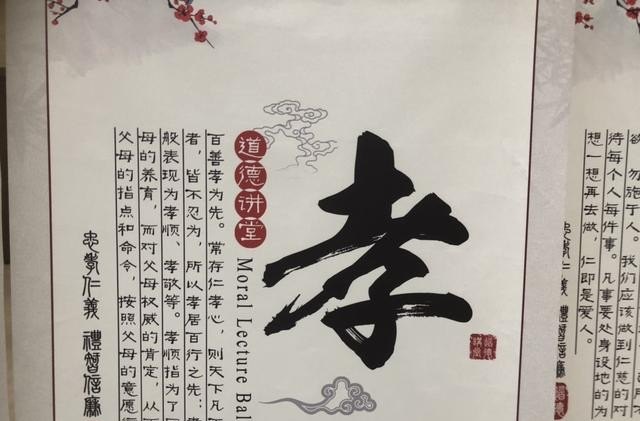 孝
道德讲堂
Moral Lecture Bal
百善孝为先。常存仁孝心，则天下凡
者，皆不忍为，所以孝居百行之先；
般表现为孝顺、孝敬等。孝顺指为了
母的养育，而对父母权威的肯定，从
父母的指点和命令，按照父母的意愿
忠孝仁義 禮智信廉
欲，勿施于人。我们应该做到仁慈的对
待每个人每件事。凡事要处身设地的为
想一想再去做，仁即是爱人。
忠孝仁義 禮智信廉